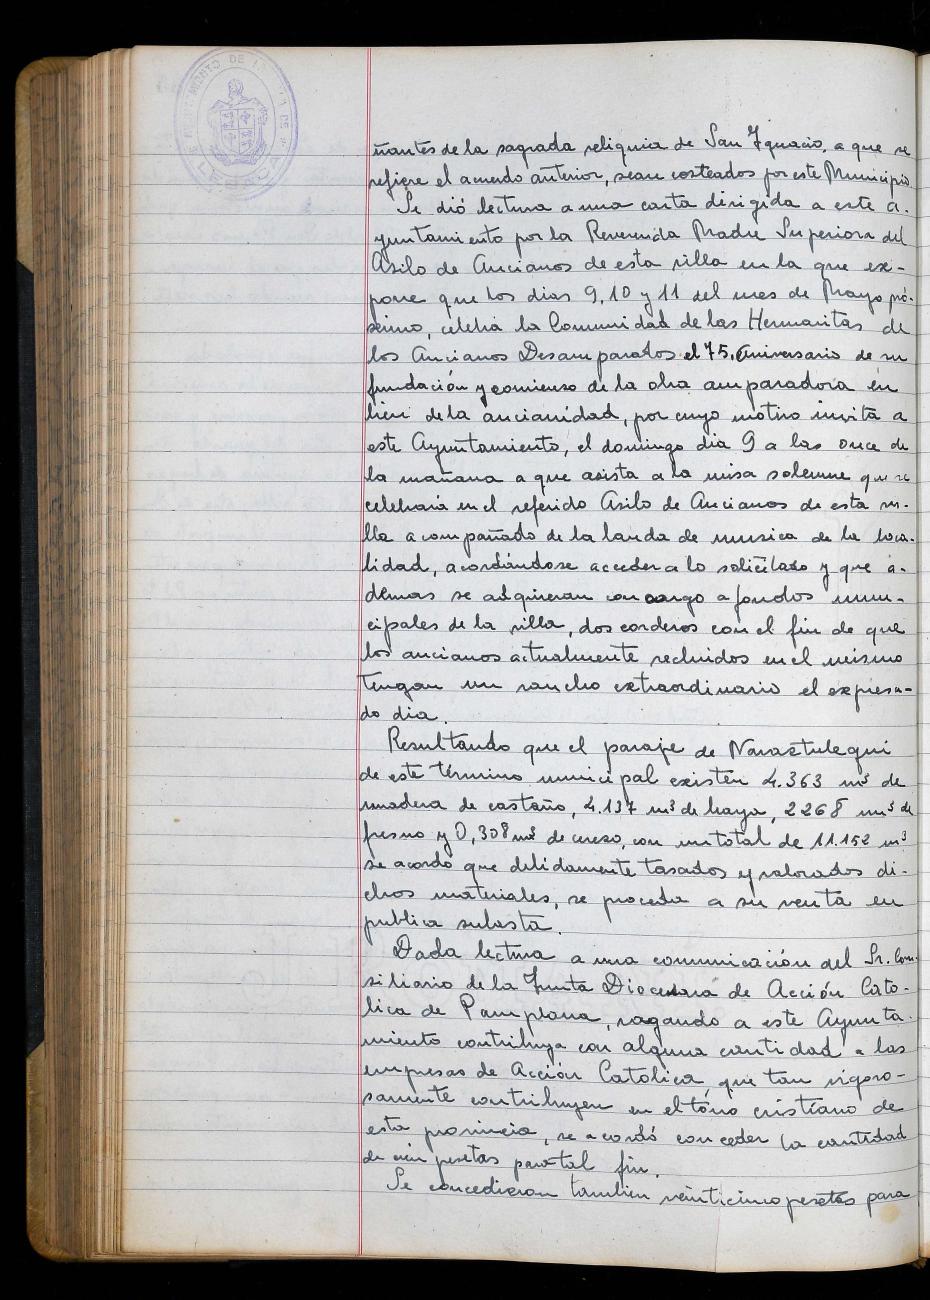 AYUNTAMIENTO DE LA VILLA DE
LESACA
ñantes de la sagrada reliquia de San Ygnacio, a que se
refiere el acuerdo anterior, sean costeados por este Municipio.
Se dió lectura a una carta dirigida a este A-
yuntamiento por la Reverenda Madre Superiora del
Asilo de Ancianos de esta villa en la que ex-
pone que los dias 9, 10 y 11 del mes de Mayo pró-
ximo, celebra la Comunidad de las Hermanitas de
los Ancianos Desamparados el 75. aniversario de su
fundación y comienzo de la obra amparadora en
bien de la ancianidad, por cuyo motivo invita a
este Ayuntamiento, el domingo dia 9 a las once de
la mañana a que asista a la misa solemne que se
celebrará en el referido Asilo de Ancianos de esta vi-
lla acompañado de la banda de musica de la loca-
lidad, acordándose acceder a lo solicitado y que a-
demas se adquieran con cargo a fondos muni-
cipales de la villa, dos corderos con el fin de que
los ancianos actualmente recluidos en el mismo
tengan un rancho extraordinario el expresa-
do dia.
Resultando que el paraje de Navaztulegui
de este término municipal existen 4.363 m³ de
madera de castaño, 4.137 m³ de haya, 2268 m³ de
fresno y 0,308 m³ de cerezo, con un total de 11.152 m³
se acordó que debidamente tasados y valorados di-
chos materiales, se proceda a su venta en
publica subasta.
Dada lectura a una comunicación del Sr. Con-
siliario de la Junta Diocesana de Acción Cató-
lica de Pamplona, rogando a este Ayunta-
miento contribuya con alguna cantidad a las
empresas de Acción Catolica, que tan vigoro-
samente contribuyen en el tono cristiano de
esta provincia, se acordó conceder la cantidad
de cien pesetas para tal fin.
Se concedieron tambien veinticinco pesetas para